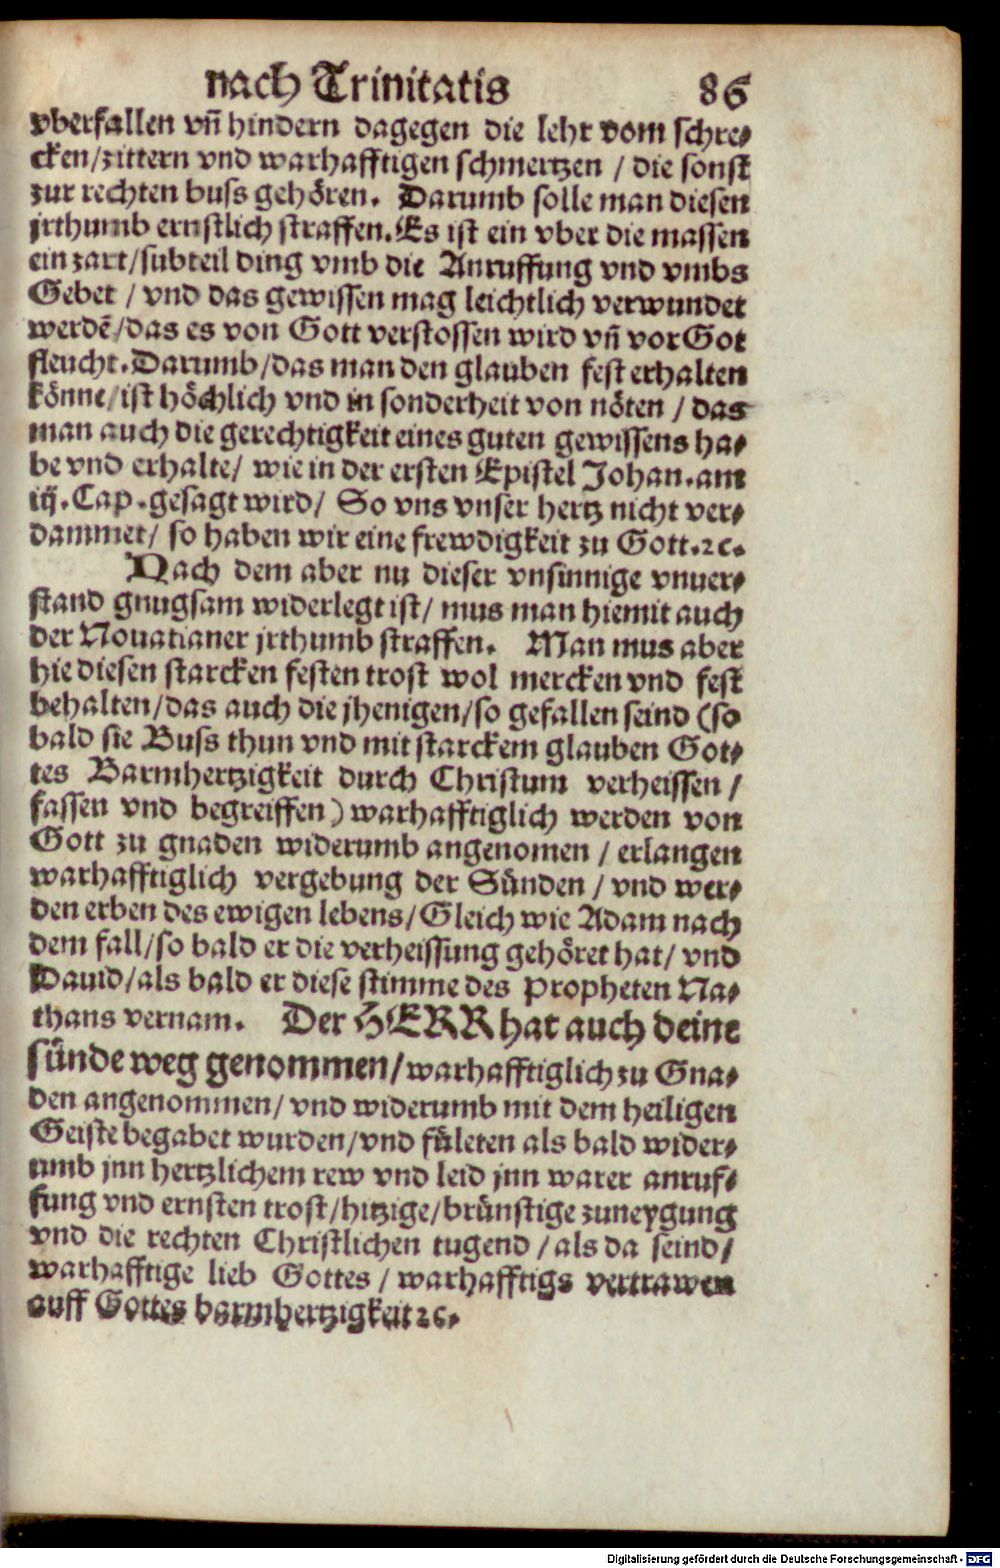 nach Trinitatis 86
vberfallen vñ hindern dagegen die lehr vom schre⸗
cken/zittern vnd warhafftigen schmertzen / die sonst
zur rechten buss gehören. Darumb solle man diesen
jrthumb ernstlich straffen. Es ist ein vber die massen
ein zart/subteil ding vmb die Anruffung vnd vmbs
Gebet / vnd das gewissen mag leichtlich verwundet
werdẽ/das es von Gott verstossen wird vñ vor Got
fleucht. Darumb/das man den glauben fest erhalten
könne/ist höchlich vnd in sonderheit von nöten / das
man auch die gerechtigkeit eines guten gewissens ha⸗
be vnd erhalte/ wie in der ersten Epistel Johan. am
iij. Cap. gesagt wird/ So vns vnser hertz nicht ver⸗
dammet/ so haben wir eine frewdigkeit zu Gott. ꝛc.
Nach dem aber nu dieser vnsinnige vnuer⸗
stand gnugsam widerlegt ist/ mus man hiemit auch
der Nouatianer jrthumb straffen. Man mus aber
hie diesen starcken festen trost wol mercken vnd fest
behalten/das auch die jhenigen/so gefallen seind (so
bald sie Buss thun vnd mit starckem glauben Got⸗
tes Barmhertzigkeit durch Christum verheissen /
fassen vnd begreiffen) warhafftiglich werden von
Gott zu gnaden widerumb angenomen / erlangen
warhafftiglich vergebung der Sünden / vnd wer⸗
den erben des ewigen lebens/Gleich wie Adam nach
dem fall/so bald er die verheissung gehöret hat/ vnd
Dauid/als bald er diese stimme des Propheten Na⸗
thans vernam. Der HERR hat auch deine
sünde weg genommen/warhafftiglich zu Gna⸗
den angenommen/ vnd widerumb mit dem heiligen
Geiste begabet wurden/vnd fületen als bald wider⸗
umb jnn hertzlichem rew vnd leid jnn warer anruf⸗
fung vnd ernsten trost/hitzige/brünstige zuneygung
vnd die rechten Christlichen tugend / als da seind/
warhafftige lieb Gottes / warhafftigs vertrawen
auff Gottes barmhertzigkeit ꝛc.
Digitalisierung gefördert durch die Deutsche Forschungsgemeinschaft - DFG